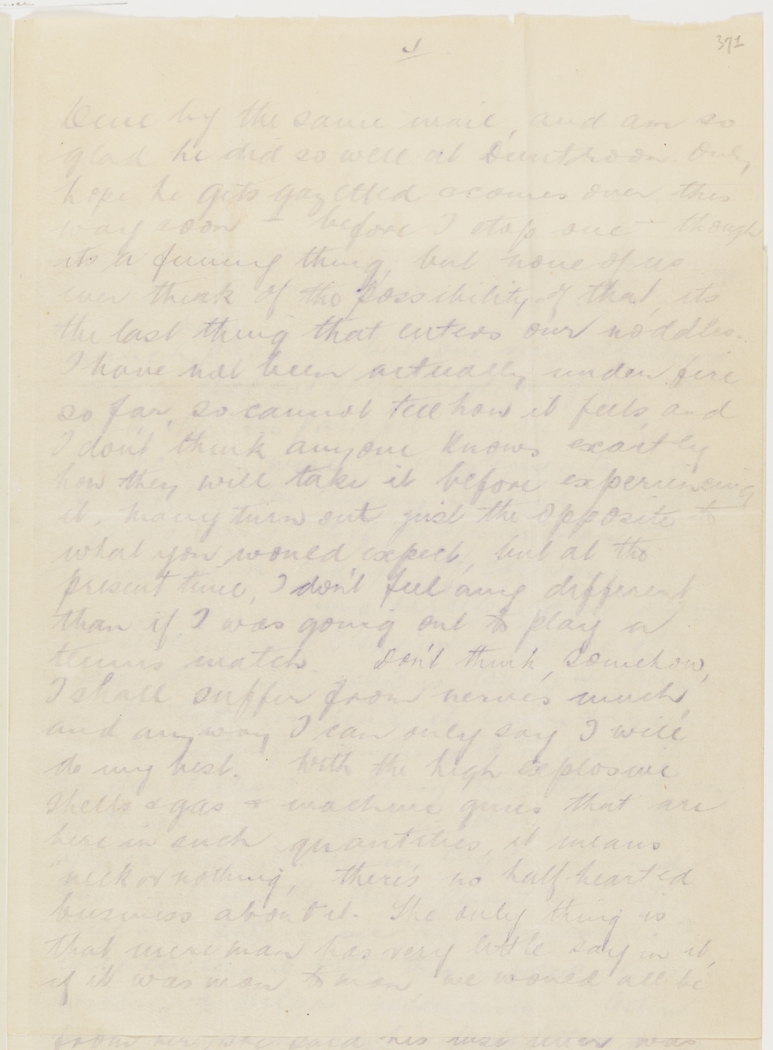 371
by the same mail, and am so
glad he did so well at Duntroon. Only
hope he gets gazetted & comes over this
way soon - before I stop one - though
its a funny thing, but none of us
ever think of the possibility of that, its
the last thing that enters our noddles.
I have not been actually under fire
so far, so cannot tell how it feels and
I don't think anyone knows exactly
how they will take it before experiencing
it. Many turn out just the opposite to
what you would expect, but at the
present time, I don't feel any different
than if I was going out to play a
tennis match. Don't think, somehow,
I shall suffer from nerves much,
and anyway I can only say I will
do my best. With the high explosive
shells & gas & machine guns that are
here in such quantities, it means
"neck or nothing", there's no half hearted
business about it. The only thing is
that mere man has very little say in it,
if it was man to man we would all be
from her she said his last letter was